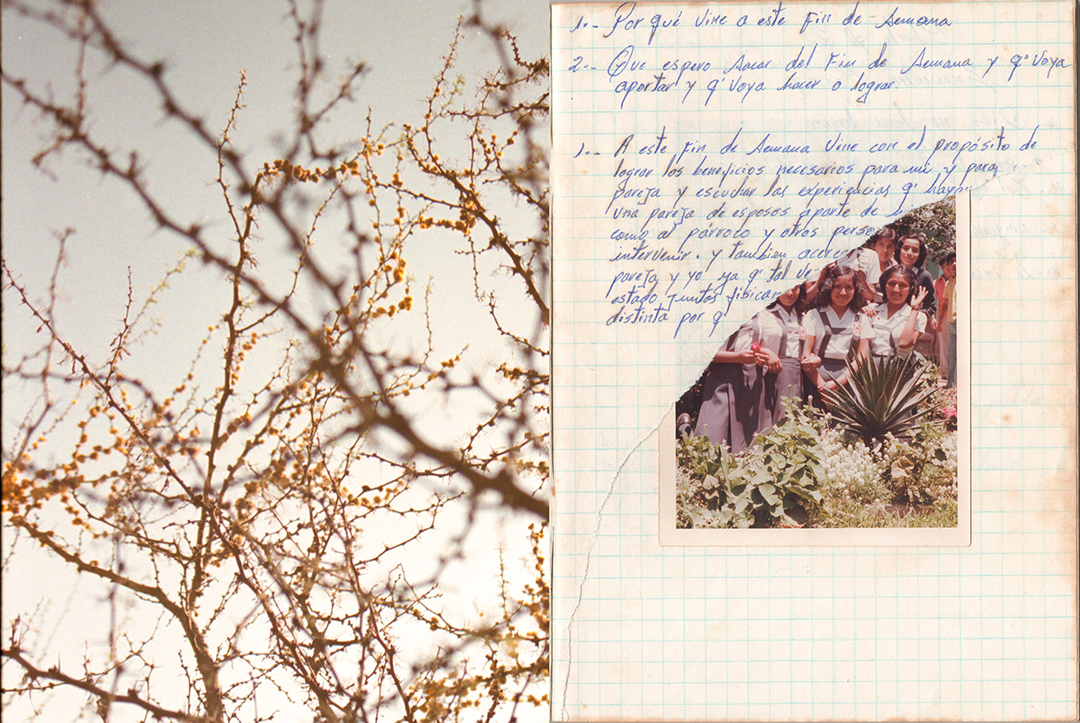 1.- Por qué vine a este Fin de Semana
2.- Que espero sacar del Fin de Semana y q' voya
aportar y q' voya hacer o lograr.
1.- A este Fin de Semana vine con el propósito de
lograr los beneficios necesarios para mi y para
pareja y escuchar las experiencias q' haya
una pareja de esposos aparte de
como al párroco y otras perso
intervenir. y tambien acerc
pareja y yo ya q' tal ve
estado juntos fisica
distinta por q'